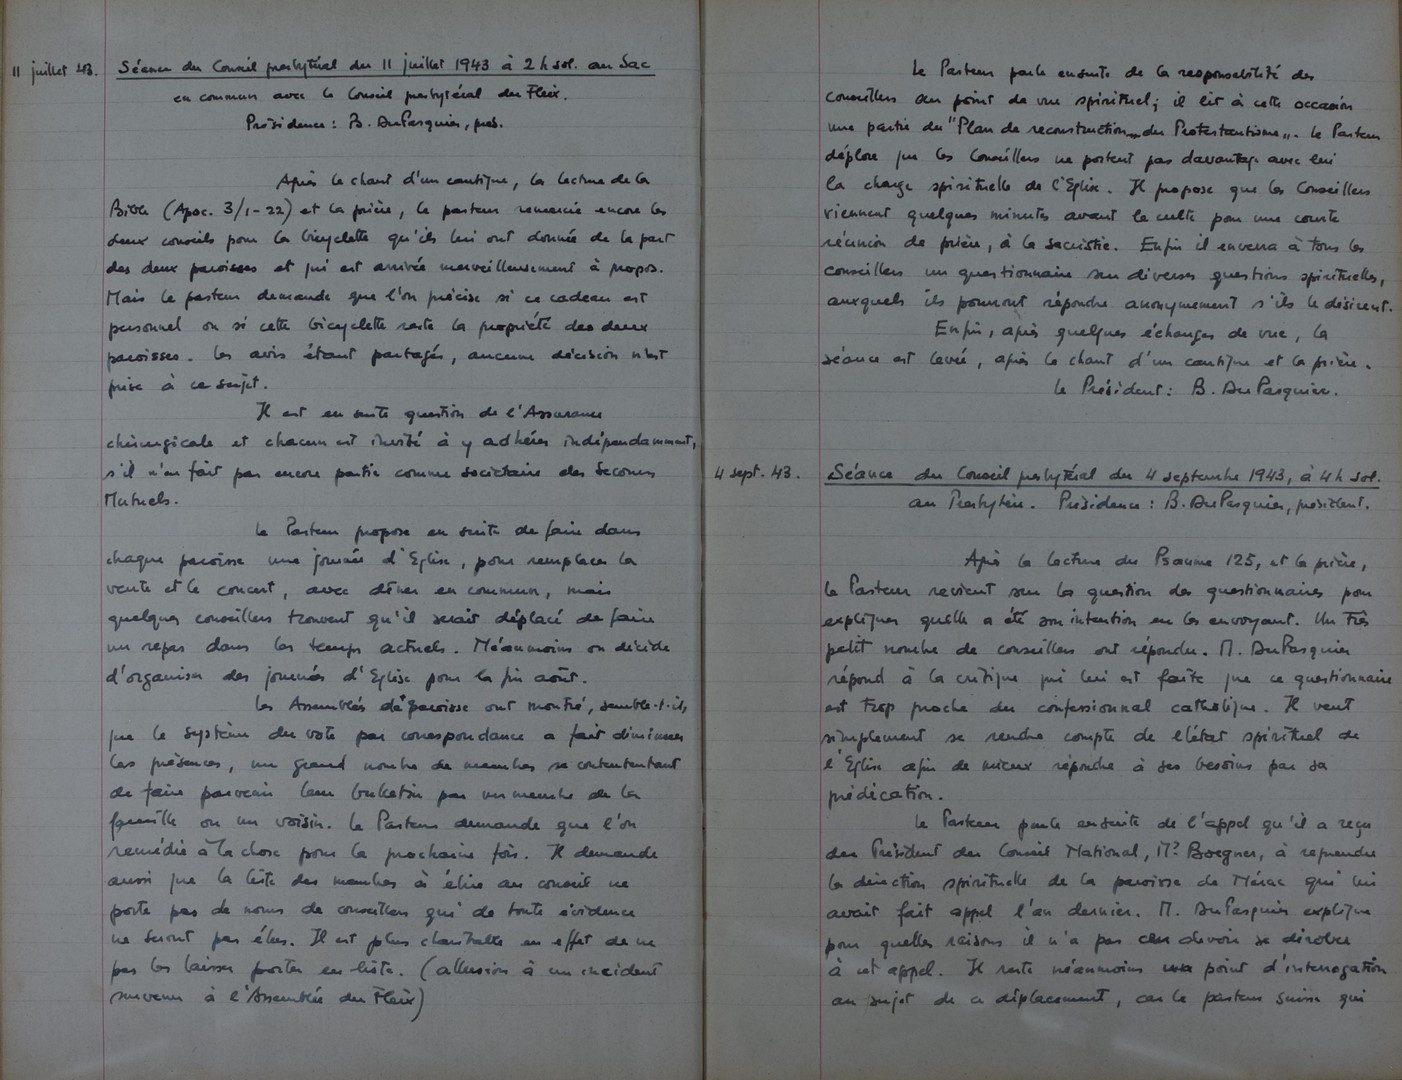 11 juillet 43.
Séance du Conseil presbytéral du 11 juillet 1943 à 2 h sol. au Sac
en commun avec le Conseil presbytéral du Fleix.
Présidence : B. DuPasquier, prés.
Après le chant d'un cantique, la lecture de la
Bible (Apoc. 3/1-22) et la prière, le pasteur remercie encore les
deux conseils pour la bicyclette qu'ils lui ont donnée de la part
des deux paroisses et qui est arrivée merveilleusement à propos.
Mais le pasteur demande que l'on précise si ce cadeau est
personnel ou si cette bicyclette reste la propriété des deux
paroisses. Les avis étant partagés, aucune décision n'est
prise à ce sujet.
Il est en suite question de l'Assurance
chirurgicale et chacun est invité à y adhérer indépendamment,
s'il n'en fait pas encore partie comme sociétaire des Secours
Mutuels.
Le Pasteur propose en suite de faire dans
chaque paroisse une journée d'Eglise, pour remplacer la
vente et le concert, avec dîner en commun, mais
quelques conseillers trouvent qu'il serait déplacé de faire
un repas dans les temps actuels. Néanmoins on décide
d'organiser des journées d'Eglise pour la fin août.
Les Assemblées de paroisse ont montré, semble-t-il,
que le système du vote par correspondance a fait diminuer
les présences, un grand nombre de membres se contentant
de faire parvenir leur bulletin par un membre de la
famille ou un voisin. Le Pasteur demande que l'on
remédie à la chose pour la prochaine fois. Il demande
aussi que la liste des membres à élire au conseil ne
porte pas de noms de conseillers qui de toute évidence
ne seront pas élus. Il est plus charitable en effet de ne
pas les laisser porter en liste. (allusion à un incident
survenu à l'Assemblée du Fleix)
Le Pasteur parle ensuite de la responsabilité des
conseillers au point de vue spirituel ; il lit à cette occasion
une partie du "Plan de reconstruction du Protestantisme". Le Pasteur
déplore que les Conseillers ne portent pas davantage avec lui
la charge spirituelle de l'Eglise. Il propose que les Conseillers
viennent quelques minutes avant le culte pour une courte
réunion de prière, à la sacristie. Enfin il enverra à tous les
conseillers un questionnaire sur diverses questions spirituelles,
auxquels ils pourront répondre anonymement s'ils le désirent.
Enfin, après quelques échanges de vue, la
séance est levée, après le chant d'un cantique et la prière.
Le Président : B. DuPasquier.
4 sept. 43.
Séance du Conseil presbytéral du 4 septembre 1943, à 4 h sol.
au Presbytère. Présidence : B. DuPasquier, président.
Après la lecture du Psaume 125, et la prière,
le Pasteur revient sur la question des questionnaires pour
expliquer quelle a été son intention en les envoyant. Un très
petit nombre de conseillers ont répondu. M. DuPasquier
répond à la critique qui lui est faite que ce questionnaire
est trop proche du confessionnal catholique. Il veut
simplement se rendre compte de l'état spirituel de
l'Eglise afin de mieux répondre à ses besoins par sa
prédication.
Le Pasteur parle ensuite de l'appel qu'il a reçu
du Président du Conseil National, Mr Boegner, à reprendre
la direction spirituelle de la paroisse de Nérac qui lui
avait fait appel l'an dernier. M. DuPasquier explique
pour quelles raisons il n'a pas cru devoir se dérober
à cet appel. Il reste néanmoins un point d'interrogation
au sujet de ce déplacement, car le pasteur suisse qui